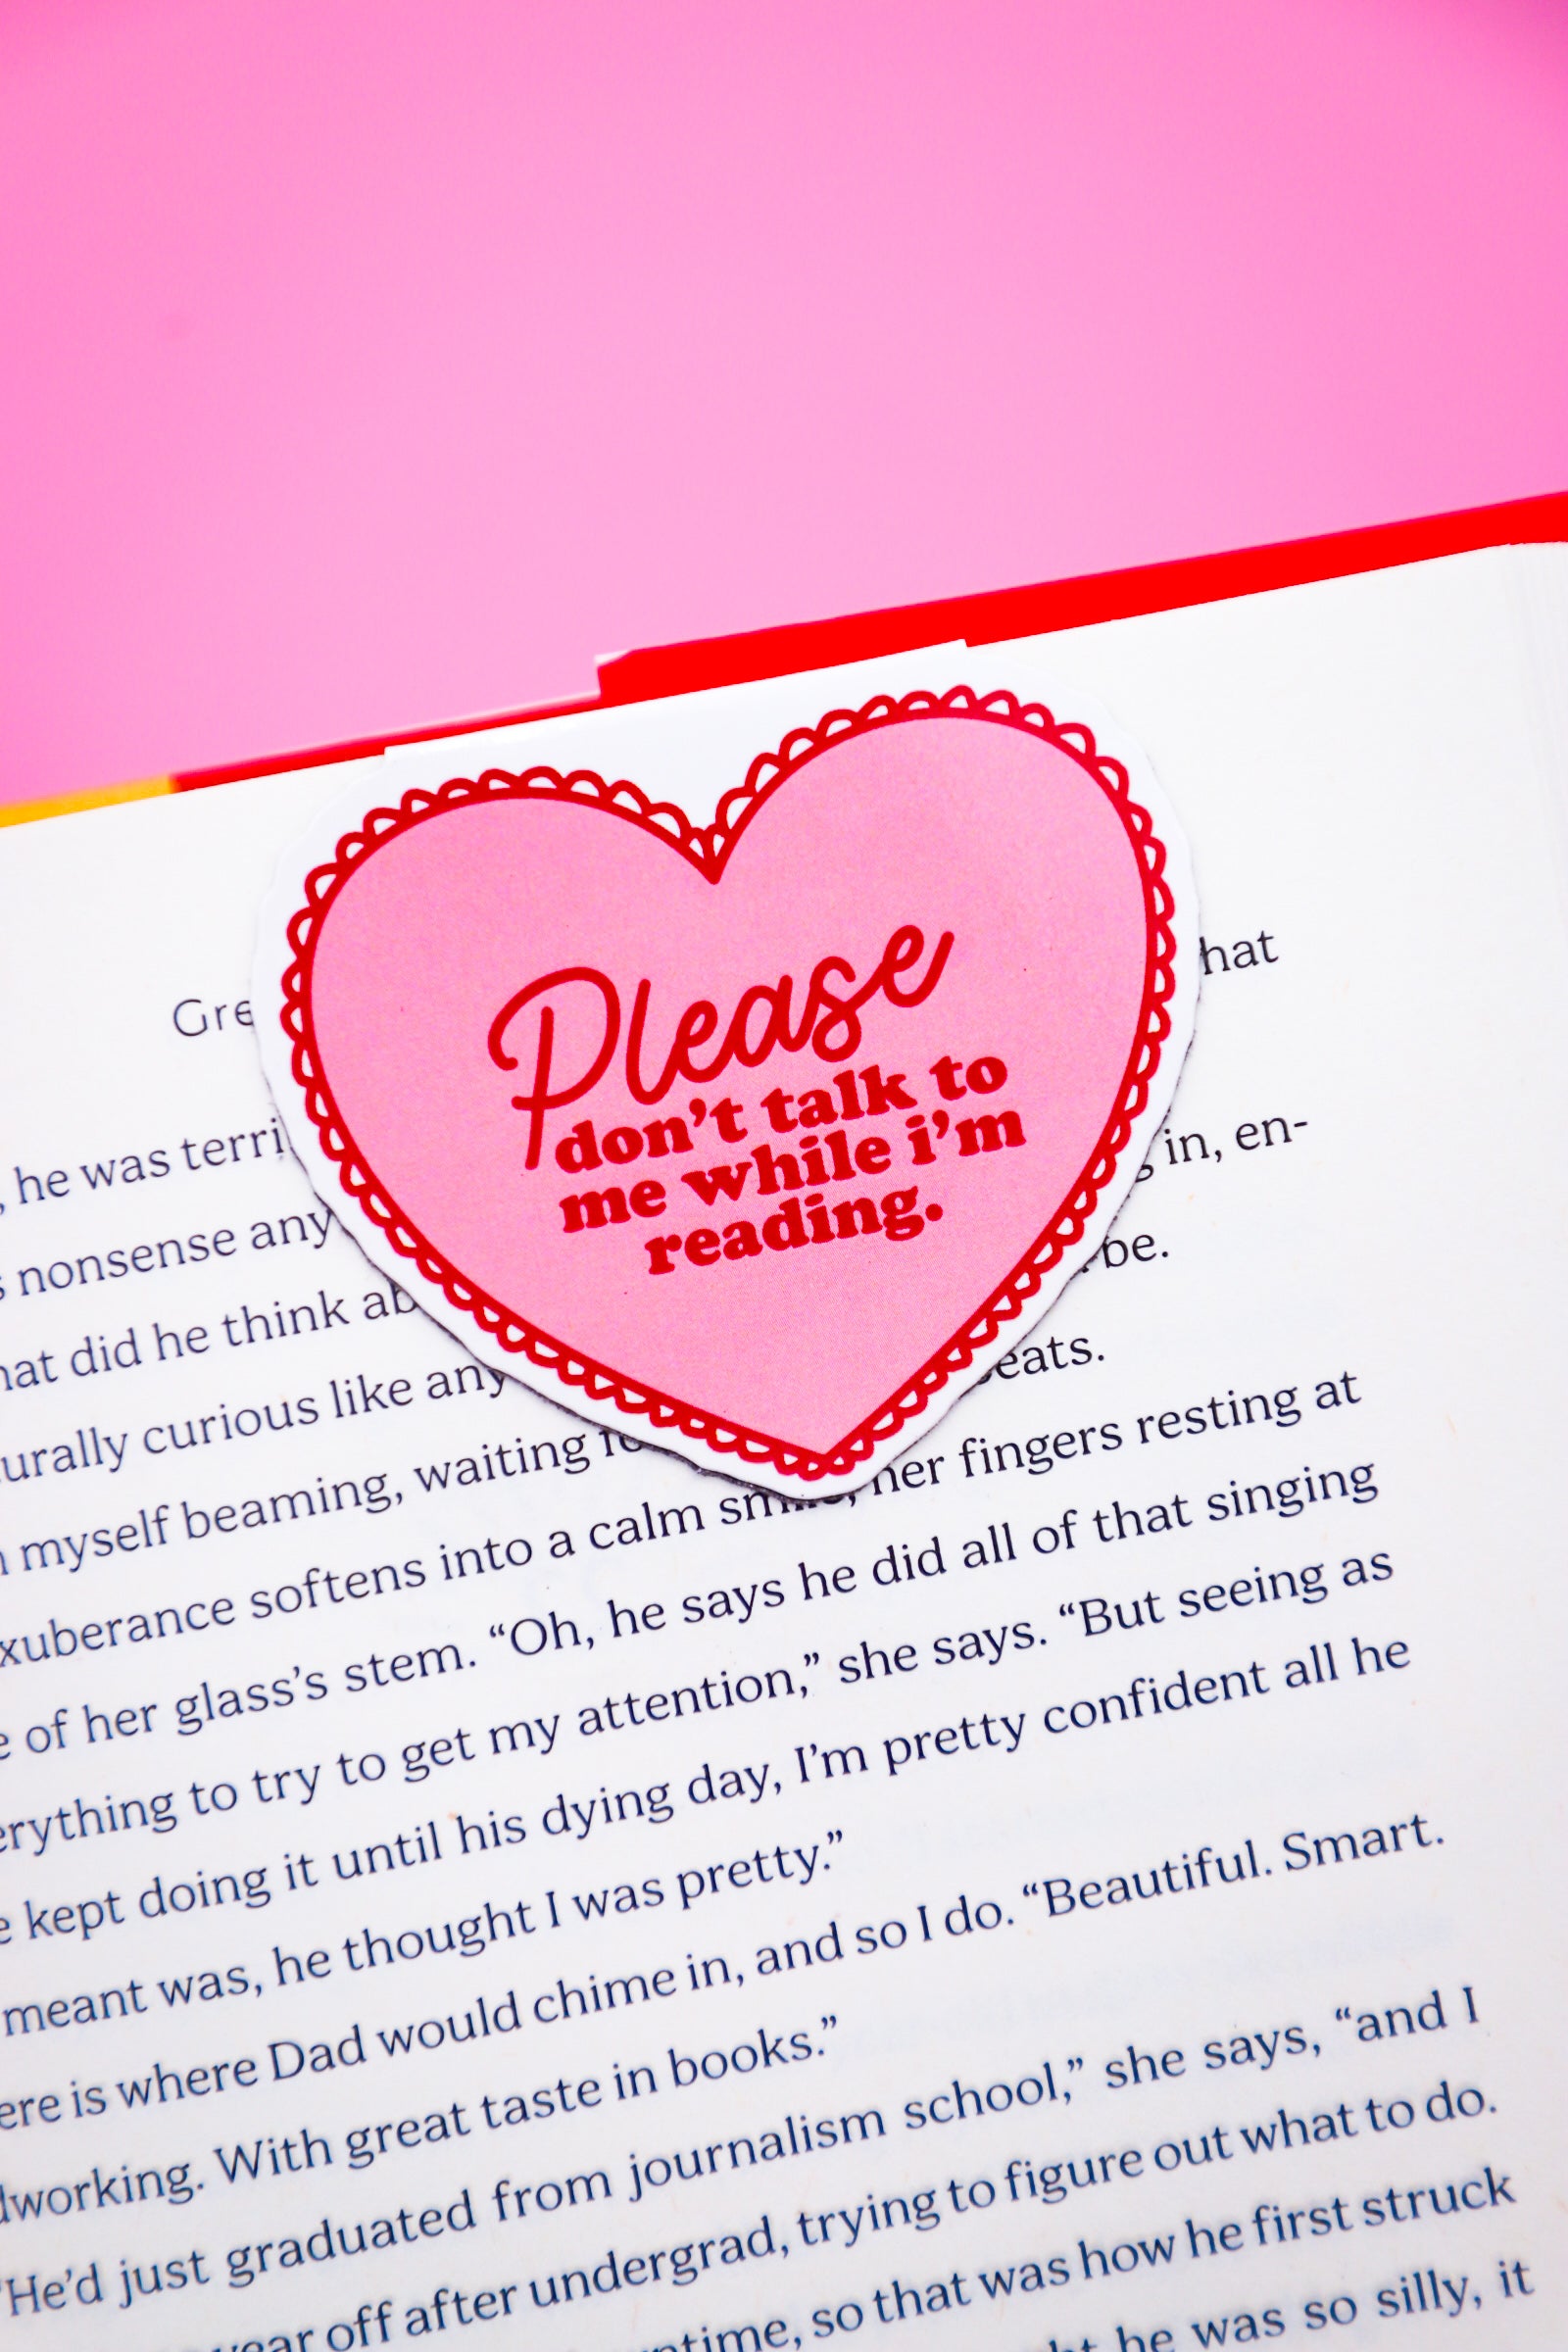 Please
don't talk to
me while i'm
reading.
Gre hat
, he was terri
s nonsense any in, en-
hat did he think ab be.
urally curious like any eats.
n myself beaming, waiting
xuberance softens into a calm her fingers resting at
e of her glass's stem. “Oh, he says he did all of that singing
erything to try to get my attention,” she says. “But seeing as
e kept doing it until his dying day, I'm pretty confident all he
meant was, he thought I was pretty.”
ere is where Dad would chime in, and so I do. “Beautiful. Smart.
dworking. With great taste in books.”
“He'd just graduated from journalism school,” she says, “and I
year off after undergrad, trying to figure out what to do.
ntime, so that was how he first struck
he was so silly, it